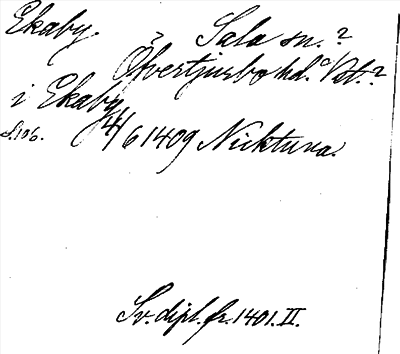 Ekaby. Sala sn.?
? Öfvertjurbo hd. Vstm.?
i Ekaby
s. 106. 4/6 1409 Nicktuna.
Sv. dipl. fr. 1401. II.